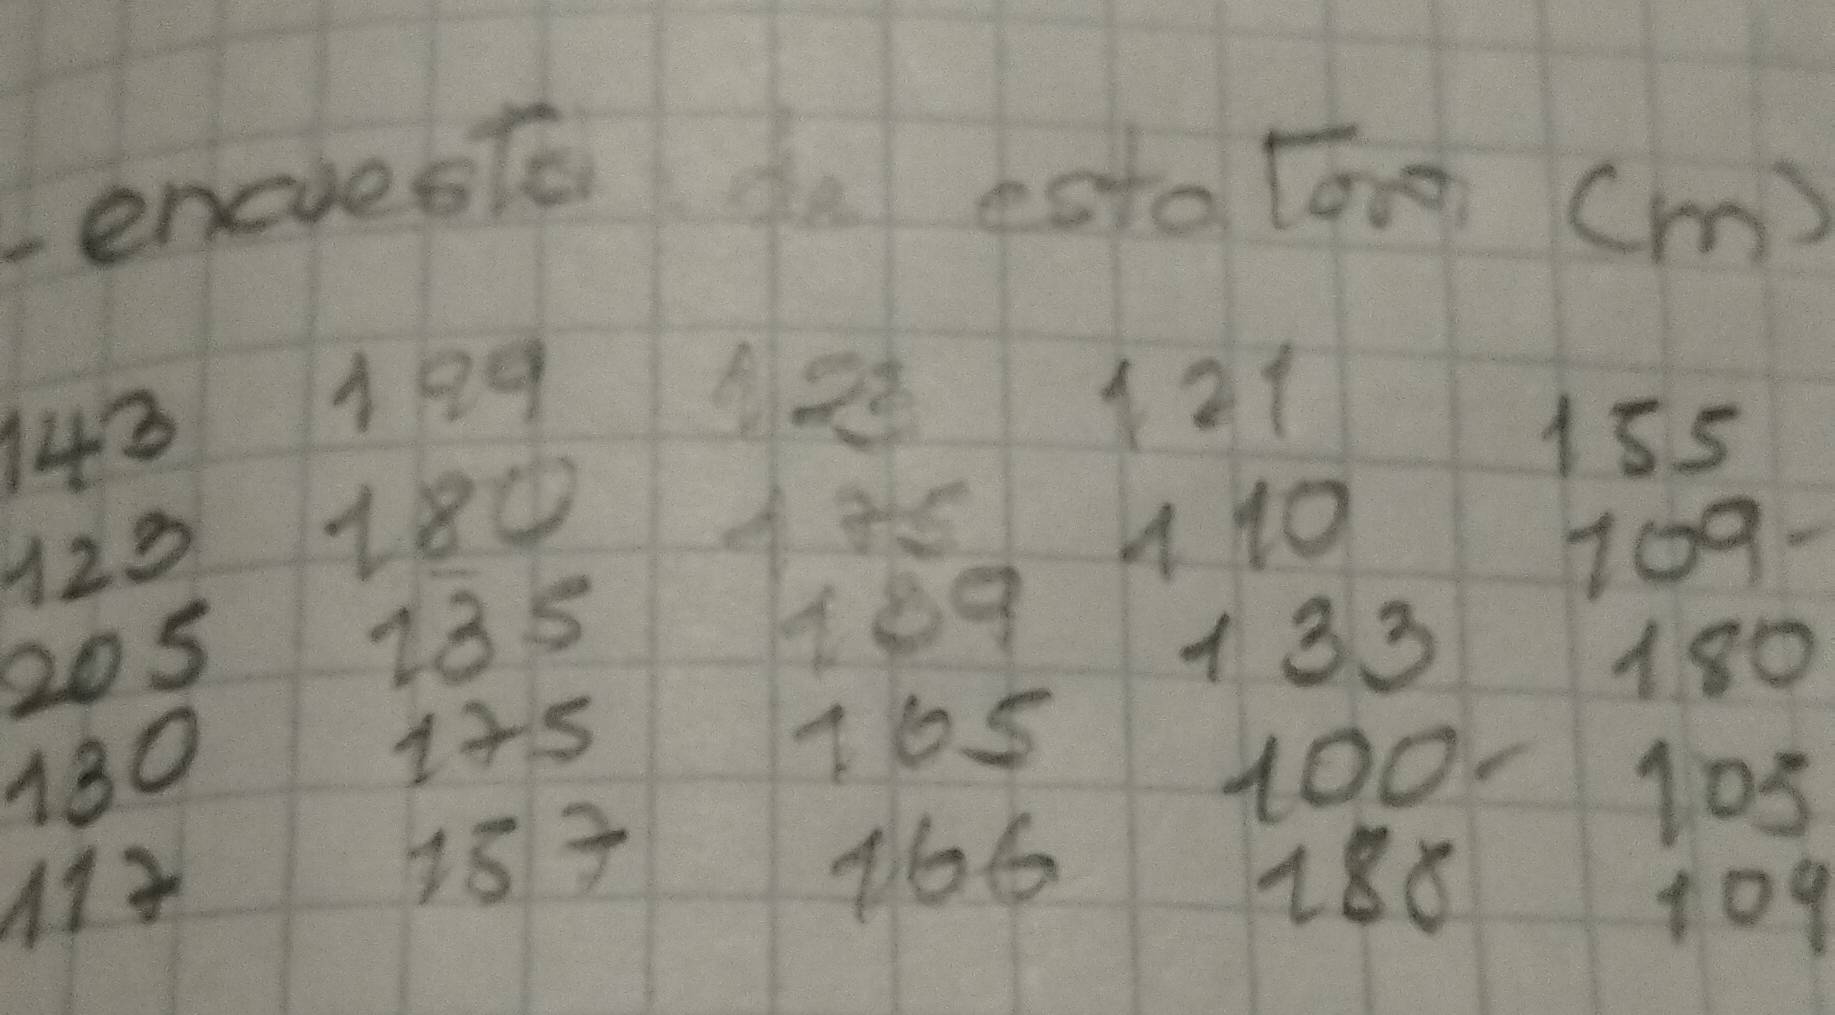 - encuesta de estatora (m)
143 199 123 121 155
123 180 175 110 109-
205 135 189 133 180
130 175 165 100- 105
117 157 166 188 109